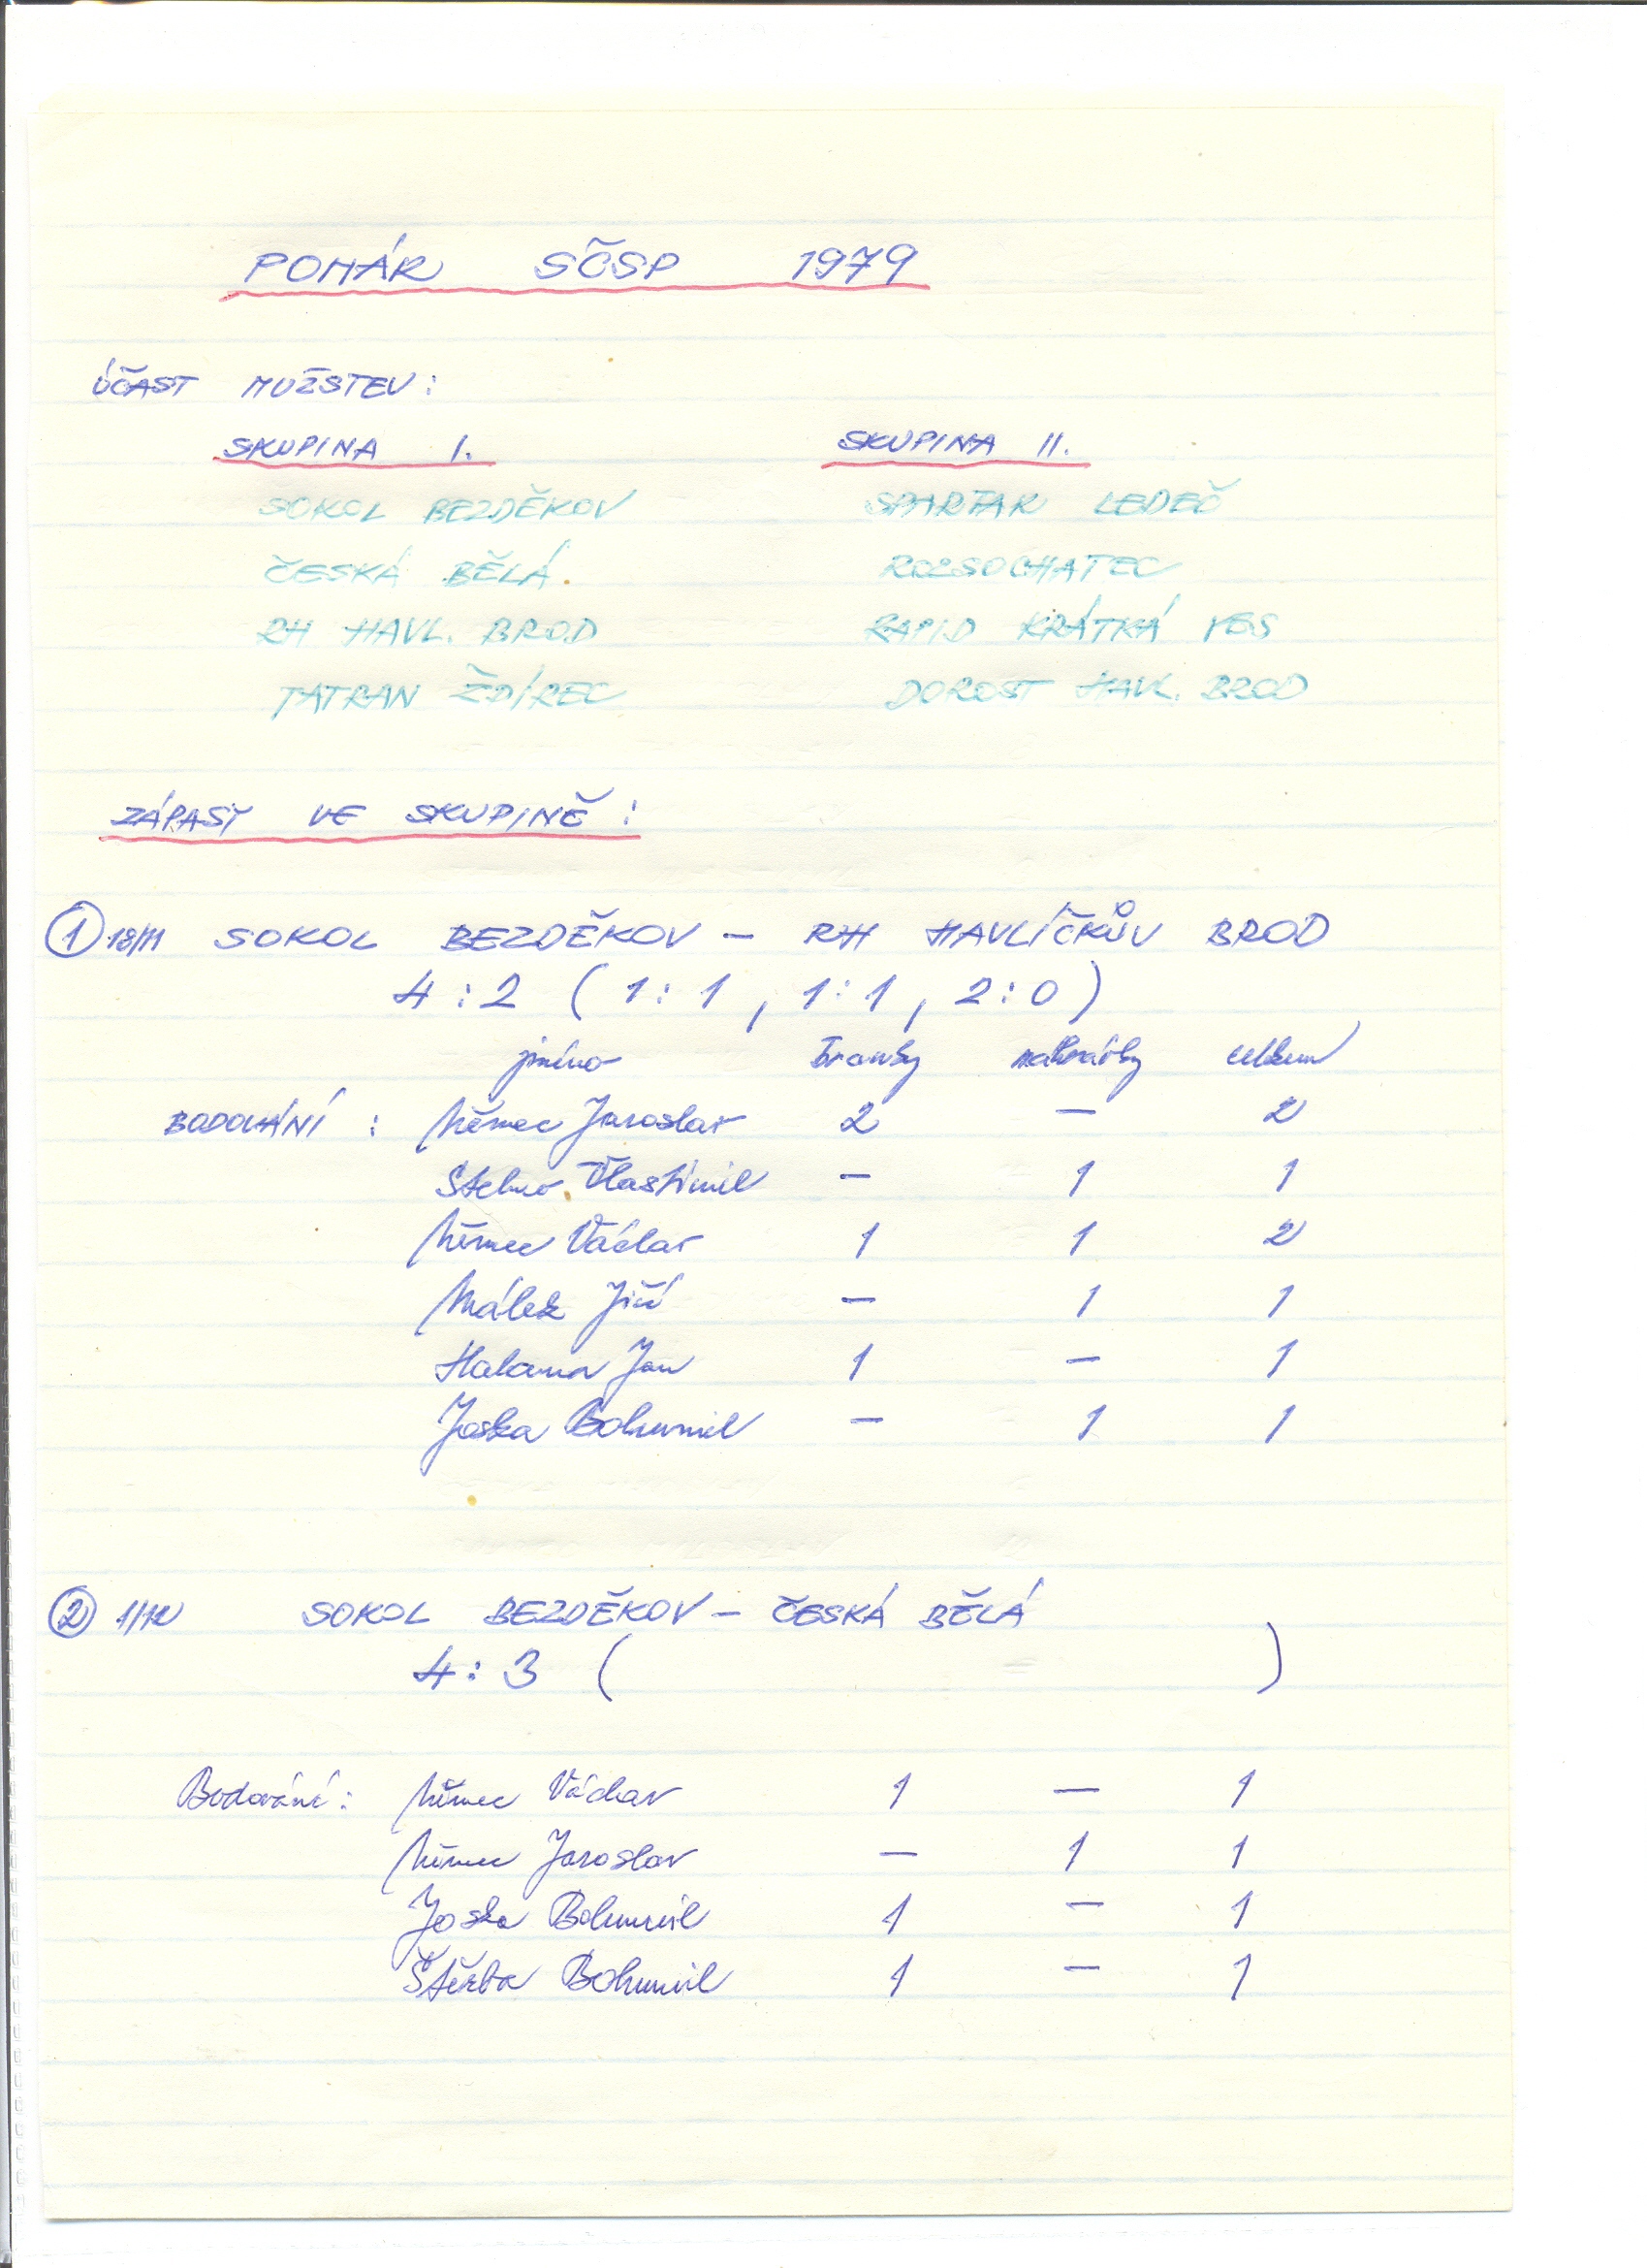 POHÁR SČSP 1979
ÚČAST MUŽSTEV:
SKUPINA I. SKUPINA II.
SOKOL BEZDĚKOV SPARTAK LEDEČ
ČESKÁ BĚLÁ ROZSOCHATEC
RH HAVL. BROD RAPID KRÁTKÁ VES
TATRAN ŽDÍREC DOROST HAVL. BROD
ZÁPASY VE SKUPINĚ:
1 18/11 SOKOL BEZDĚKOV – RH HAVLÍČKŮV BROD
4:2 (1:1, 1:1, 2:0)
jméno branky nahrávky celkem
BODOVÁNÍ: Němec Jaroslav 2 – 2
Vlastimil – 1 1
Němec Václav 1 1 2
Málek Jiří – 1 1
Jan 1 – 1
Joska Bohumil – 1 1
2 1/12 SOKOL BEZDĚKOV – ČESKÁ BĚLÁ
4:3 ( )
Bodování: Němec Václav 1 – 1
Němec Jaroslav – 1 1
Joska Bohumil 1 – 1
Štěrba Bohumil 1 – 1